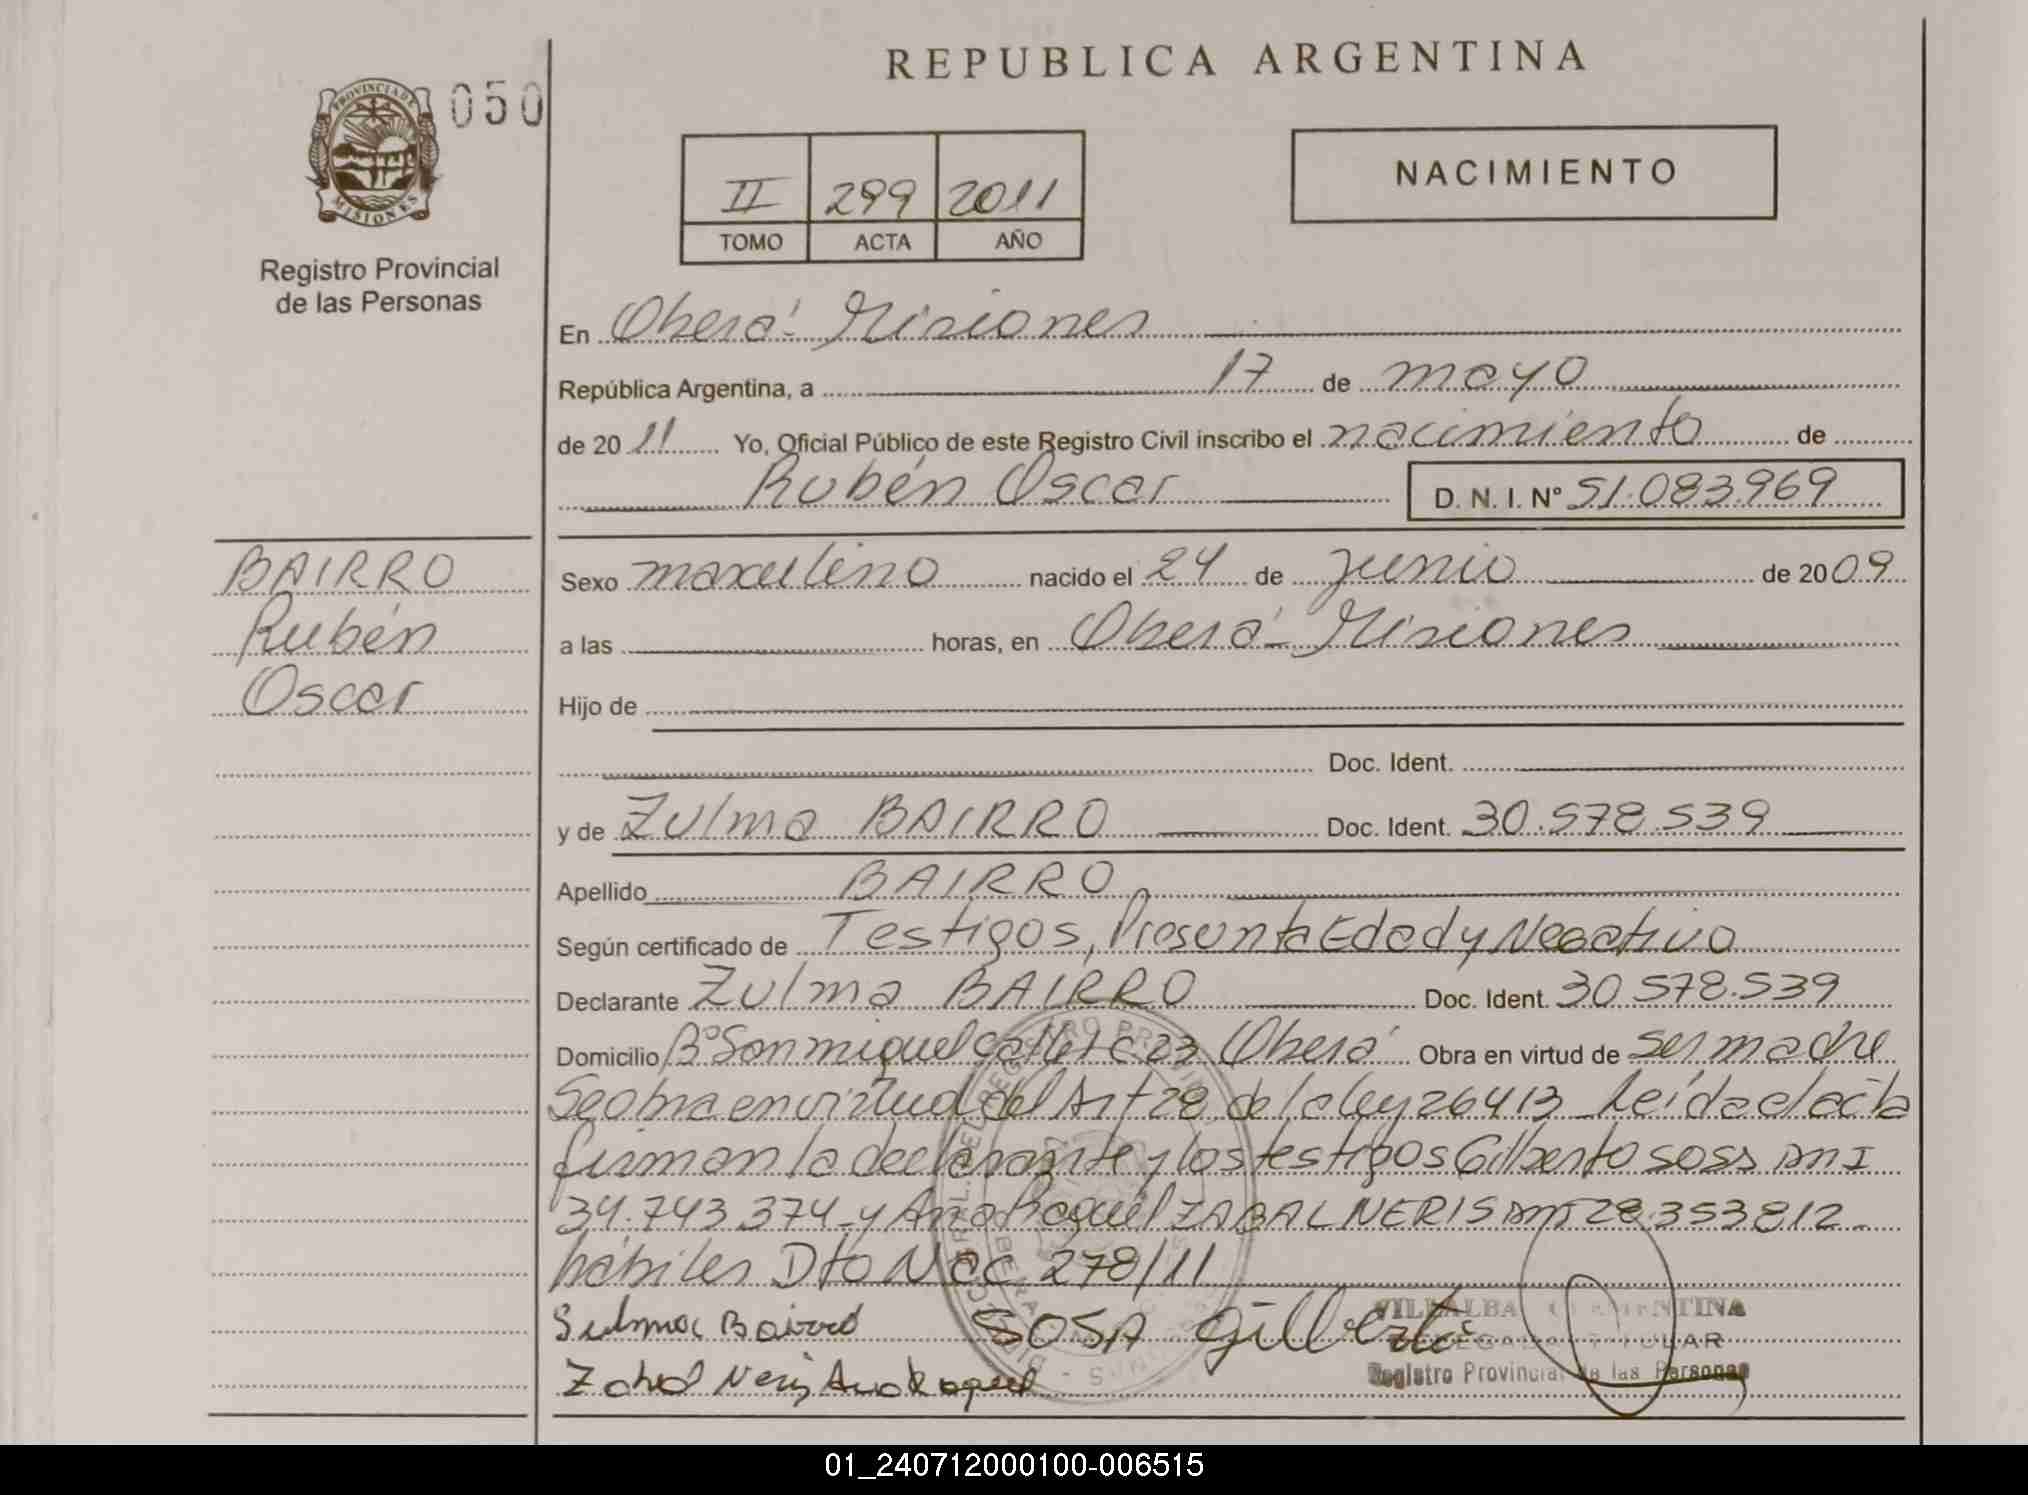 REPUBLICA ARGENTINA
PROVINCIA DE
MISIONES
050
Registro Provincial
de las Personas
II 299 2011
TOMO ACTA AÑO
NACIMIENTO
En Oberá - Misiones
República Argentina, a 17 de mayo
de 20 11 Yo, Oficial Público de este Registro Civil inscribo el nacimiento de
Rubén Oscar D. N. I. Nº 51.083.969
BAIRRO
Rubén
Oscar
Sexo masculino nacido el 24 de junio de 2009
a las horas, en Oberá - Misiones
Hijo de
Doc. Ident.
y de Zulma BAIRRO Doc. Ident. 30.578.539
Apellido BAIRRO
Según certificado de Testigos, Presunta Edad y Negativo
Declarante Zulma BAIRRO Doc. Ident. 30.578.539
Domicilio Bº San miguel Calle 1 C 23 Oberá Obra en virtud de ser madre
Se obra en virtud del Art 28 de la ley 26413 _ Leída el acta
firman la declarante y los testigos Gilberto SOSA DNI
34.743.374 _ y Ana Raquel ZABAL NERIS DNI 28.353.812 _
hábiles Dto Nac 278/11
Sulma Bairro SOSA Gilberto
VILLALBA CLEMENTINA
DELEGADA TITULAR
Registro Provincial de las Personas
Zabal Neris Ana Raquel
01_240712000100-006515